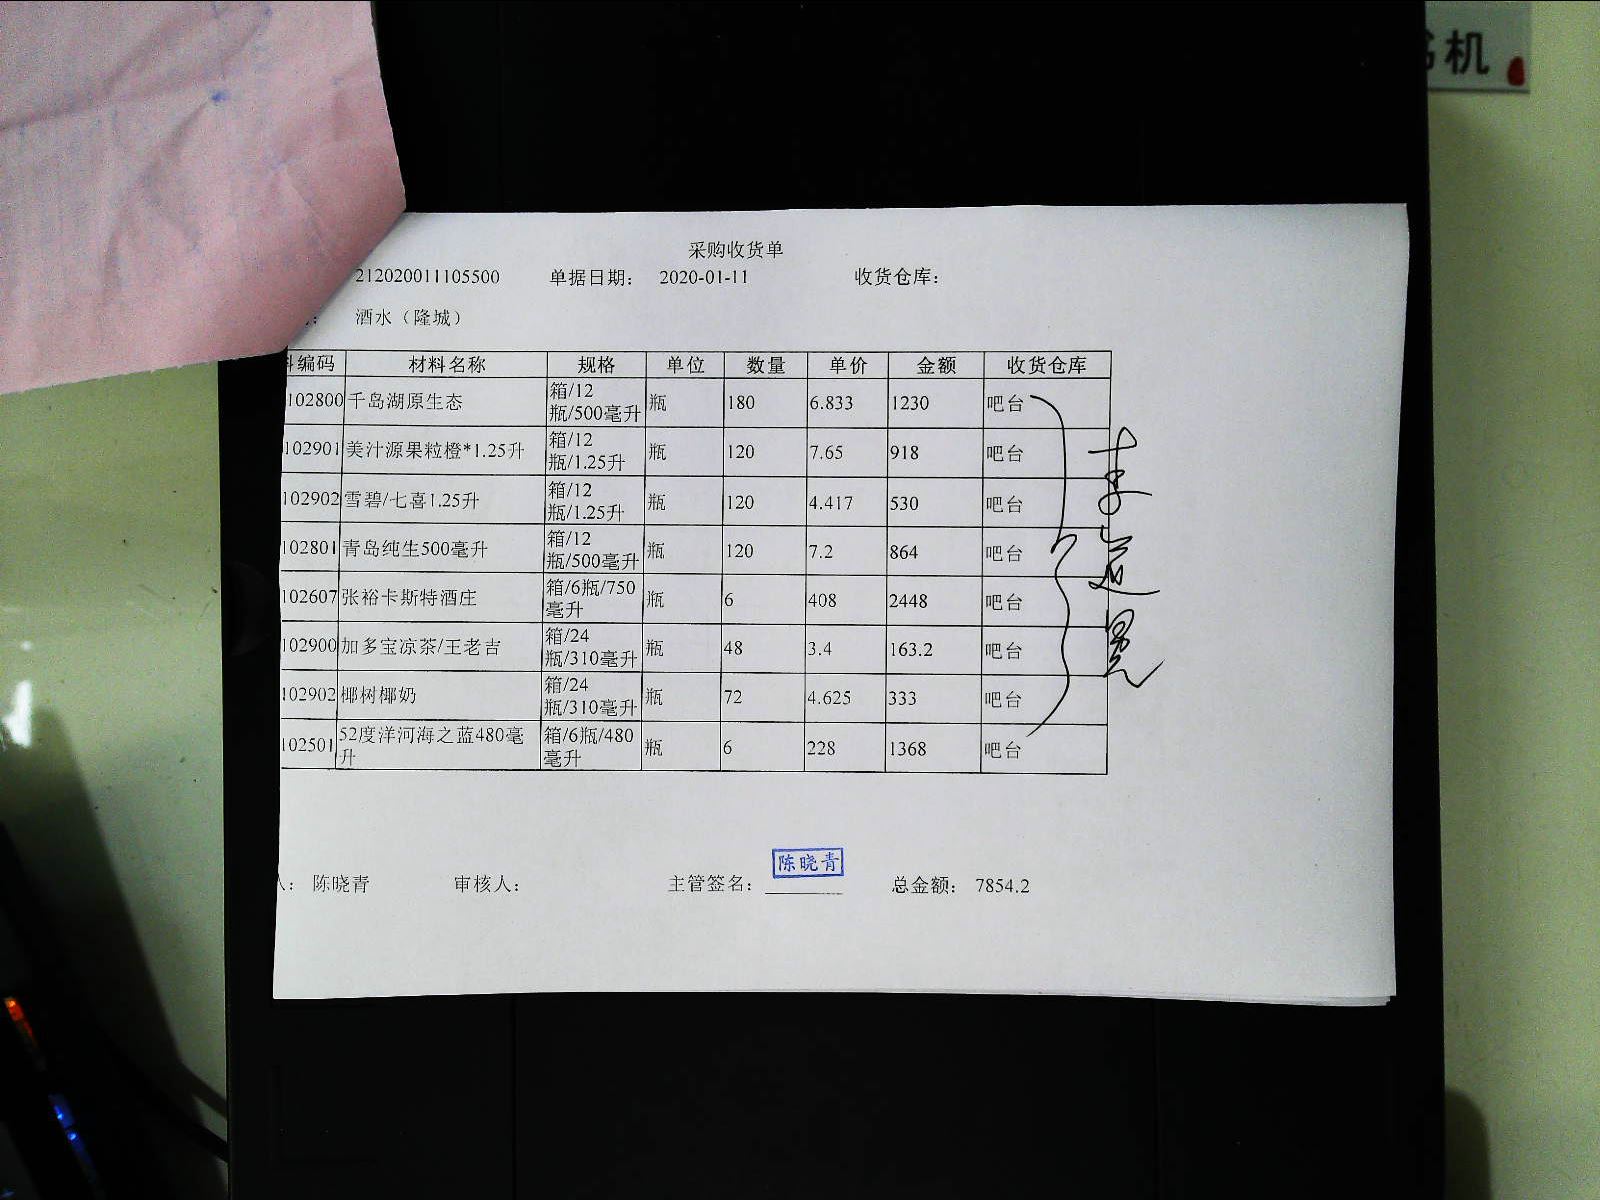 机
采购收货单
212020011105500 单据日期： 2020-01-11 收货仓库：
： 酒水（隆城）
编码 材料名称 规格 单位 数量 单价 金额 收货仓库
102800 千岛湖原生态 箱/12瓶/500毫升 瓶 180 6.833 1230 吧台
102901 美汁源果粒橙*1.25升 箱/12瓶/1.25升 瓶 120 7.65 918 吧台
102902 雪碧/七喜1.25升 箱/12瓶/1.25升 瓶 120 4.417 530 吧台
102801 青岛纯生500毫升 箱/12瓶/500毫升 瓶 120 7.2 864 吧台
102607 张裕卡斯特酒庄 箱/6瓶/750毫升 瓶 6 408 2448 吧台
102900 加多宝凉茶/王老吉 箱/24瓶/310毫升 瓶 48 3.4 163.2 吧台
102902 椰树椰奶 箱/24瓶/310毫升 瓶 72 4.625 333 吧台
102501 52度洋河海之蓝480毫升 箱/6瓶/480毫升 瓶 6 228 1368 吧台
陈晓青
： 陈晓青 审核人： 主管签名： 总金额： 7854.2